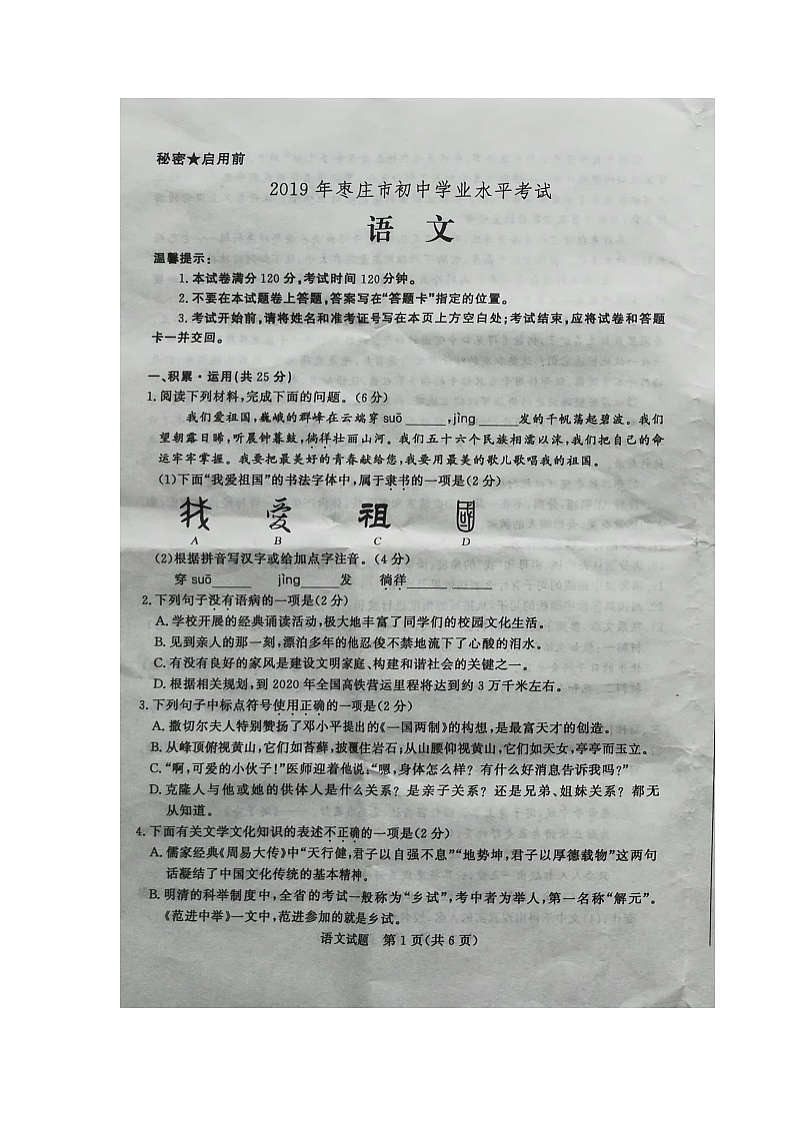 秘密★启用前
2019年枣庄市初中学业水平考试
语 文
温馨提示:
1.本试卷满分120分,考试时间120分钟。
2.不要在本试题卷上答题,答案写在“答题卡”指定的位置。
3.考试开始前,请将姓名和准考证号写在本页上方空白处;考试结束,应将试卷和答题
卡一并交回。
一、积累·运用(共25分)
1.阅读下列材料,完成下面的问题。(6分)
我们爱祖国,巍峨的群峰在云端穿suō______,jìng______发的千帆荡起碧波。我们
望朝露日晞,听晨钟暮鼓,徜徉壮丽山河。我们五十六个民族相濡以沫,我们把自己的命
运牢牢掌握。我要把最美好的青春献给您,我要用最美的歌儿歌唱我的祖国。
(1)下面“我爱祖国”的书法字体中,属于隶书的一项是(2分)
我 愛 祖 國
A B C D
(2)根据拼音写汉字或给加点字注音。(4分)
穿suō______ jìng______发 徜徉______ ______
2.下列句子没有语病的一项是(2分)
A.学校开展的经典诵读活动,极大地丰富了同学们的校园文化生活。
B.见到亲人的那一刻,漂泊多年的他忍俊不禁地流下了心酸的泪水。
C.有没有良好的家风是建设文明家庭、构建和谐社会的关键之一。
D.根据相关规划,到2020年全国高铁营运里程将达到约3万千米左右。
3.下列句子中标点符号使用正确的一项是(2分)
A.撒切尔夫人特别赞扬了邓小平提出的《一国两制》的构想,是最富天才的创造。
B.从峰顶俯视黄山,它们如苔藓,披覆住岩石;从山腰仰视黄山,它们如天女,亭亭而玉立。
C.“啊,可爱的小伙子!”医师迎着他说:“嗯,身体怎么样?有什么好消息告诉我吗?”
D.克隆人与他或她的供体人是什么关系?是亲子关系?还是兄弟、姐妹关系?都无
从知道。
4.下面有关文学文化知识的表述不正确的一项是(2分)
A.儒家经典《周易大传》中“天行健,君子以自强不息”“地势坤,君子以厚德载物”这两句
话凝结了中国文化传统的基本精神。
B.明清的科举制度中,全省的考试一般称为“乡试”,考中者为举人,第一名称“解元”。
《范进中举》一文中,范进参加的就是乡试。
语文试题 第1页(共6页)